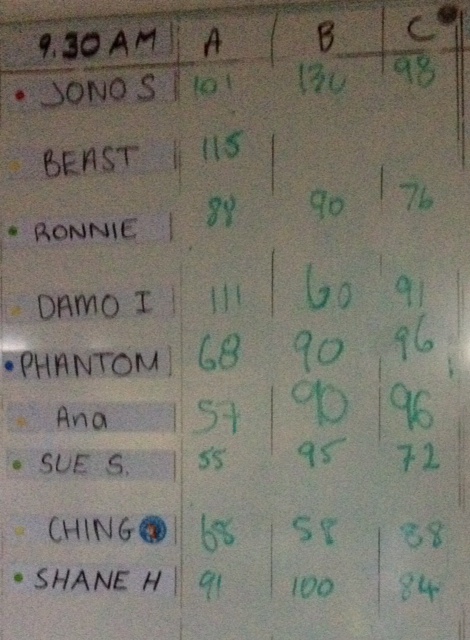 9.30 AM A B C
JONO S 101 130 98
BEAST 115
RONNIE 88 90 76
DAMO I 111 60 91
PHANTOM 68 90 96
Ana 57 90 96
SUE S. 55 95 72
CHING 68 58 88
SHANE H 91 100 84